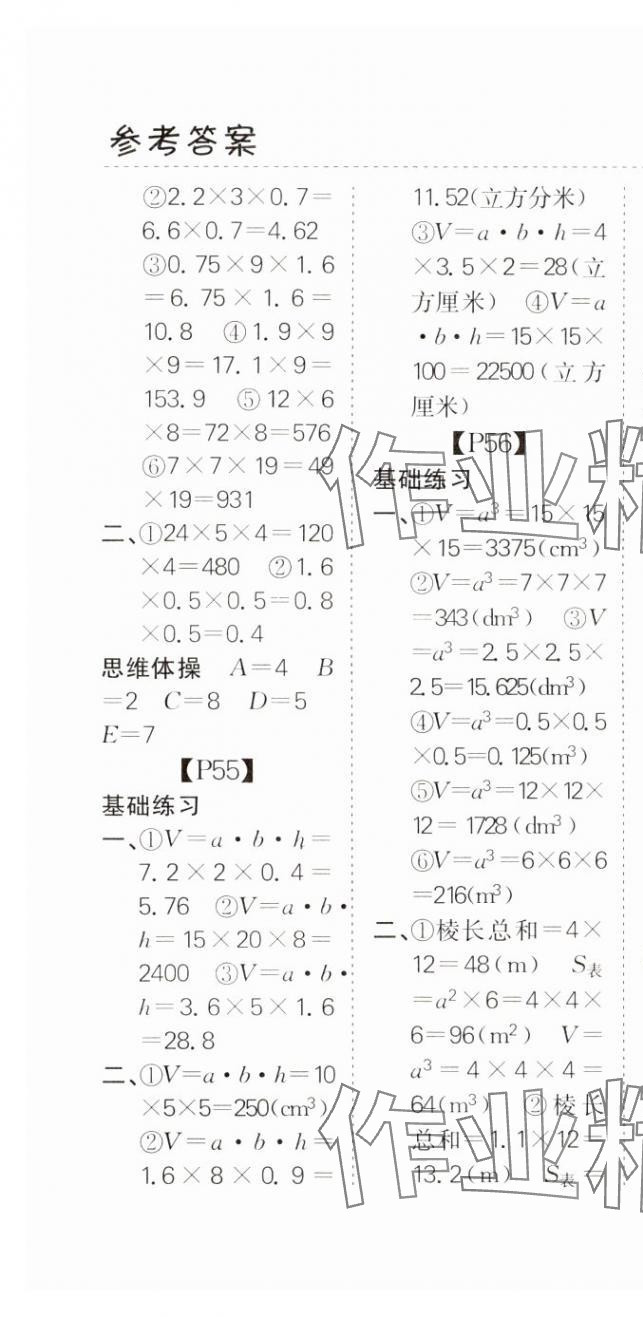 参考答案
②2.2×3×0.7=
6.6×0.7=4.62
③0.75×9×1.6
=6.75×1.6=
10.8 ④1.9×9
×9=17.1×9=
153.9 ⑤12×6
×8=72×8=576
⑥7×7×19=49
×19=931
二、①24×5×4=120
×4=480 ②1.6
×0.5×0.5=0.8
×0.5=0.4
思维体操 A=4 B
=2 C=8 D=5
E=7
【P55】
基础练习
一、①V=a·b·h=
7.2×2×0.4=
5.76 ②V=a·b·
h=15×20×8=
2400 ③V=a·b·
h=3.6×5×1.6
=28.8
二、①V=a·b·h=10
×5×5=250(cm³)
②V=a·b·h=
1.6×8×0.9=
11.52(立方分米)
③V=a·b·h=4
×3.5×2=28(立
方厘米) ④V=a
·b·h=15×15×
100=22500(立方
厘米)
【P56】
基础练习
一、①V=a³=15×15
×15=3375(cm³)
②V=a³=7×7×7
=343(dm³) ③V
=a³=2.5×2.5×
2.5=15.625(dm³)
④V=a³=0.5×0.5
×0.5=0.125(m³)
⑤V=a³=12×12×
12=1728(dm³)
⑥V=a³=6×6×6
=216(m³)
二、①棱长总和=4×
12=48(m) S表
=a²×6=4×4×
6=96(m²) V=
a³=4×4×4=
64(m³) ②棱长
总和=1.1×12=
13.2(m) S表=
作业精
作业精